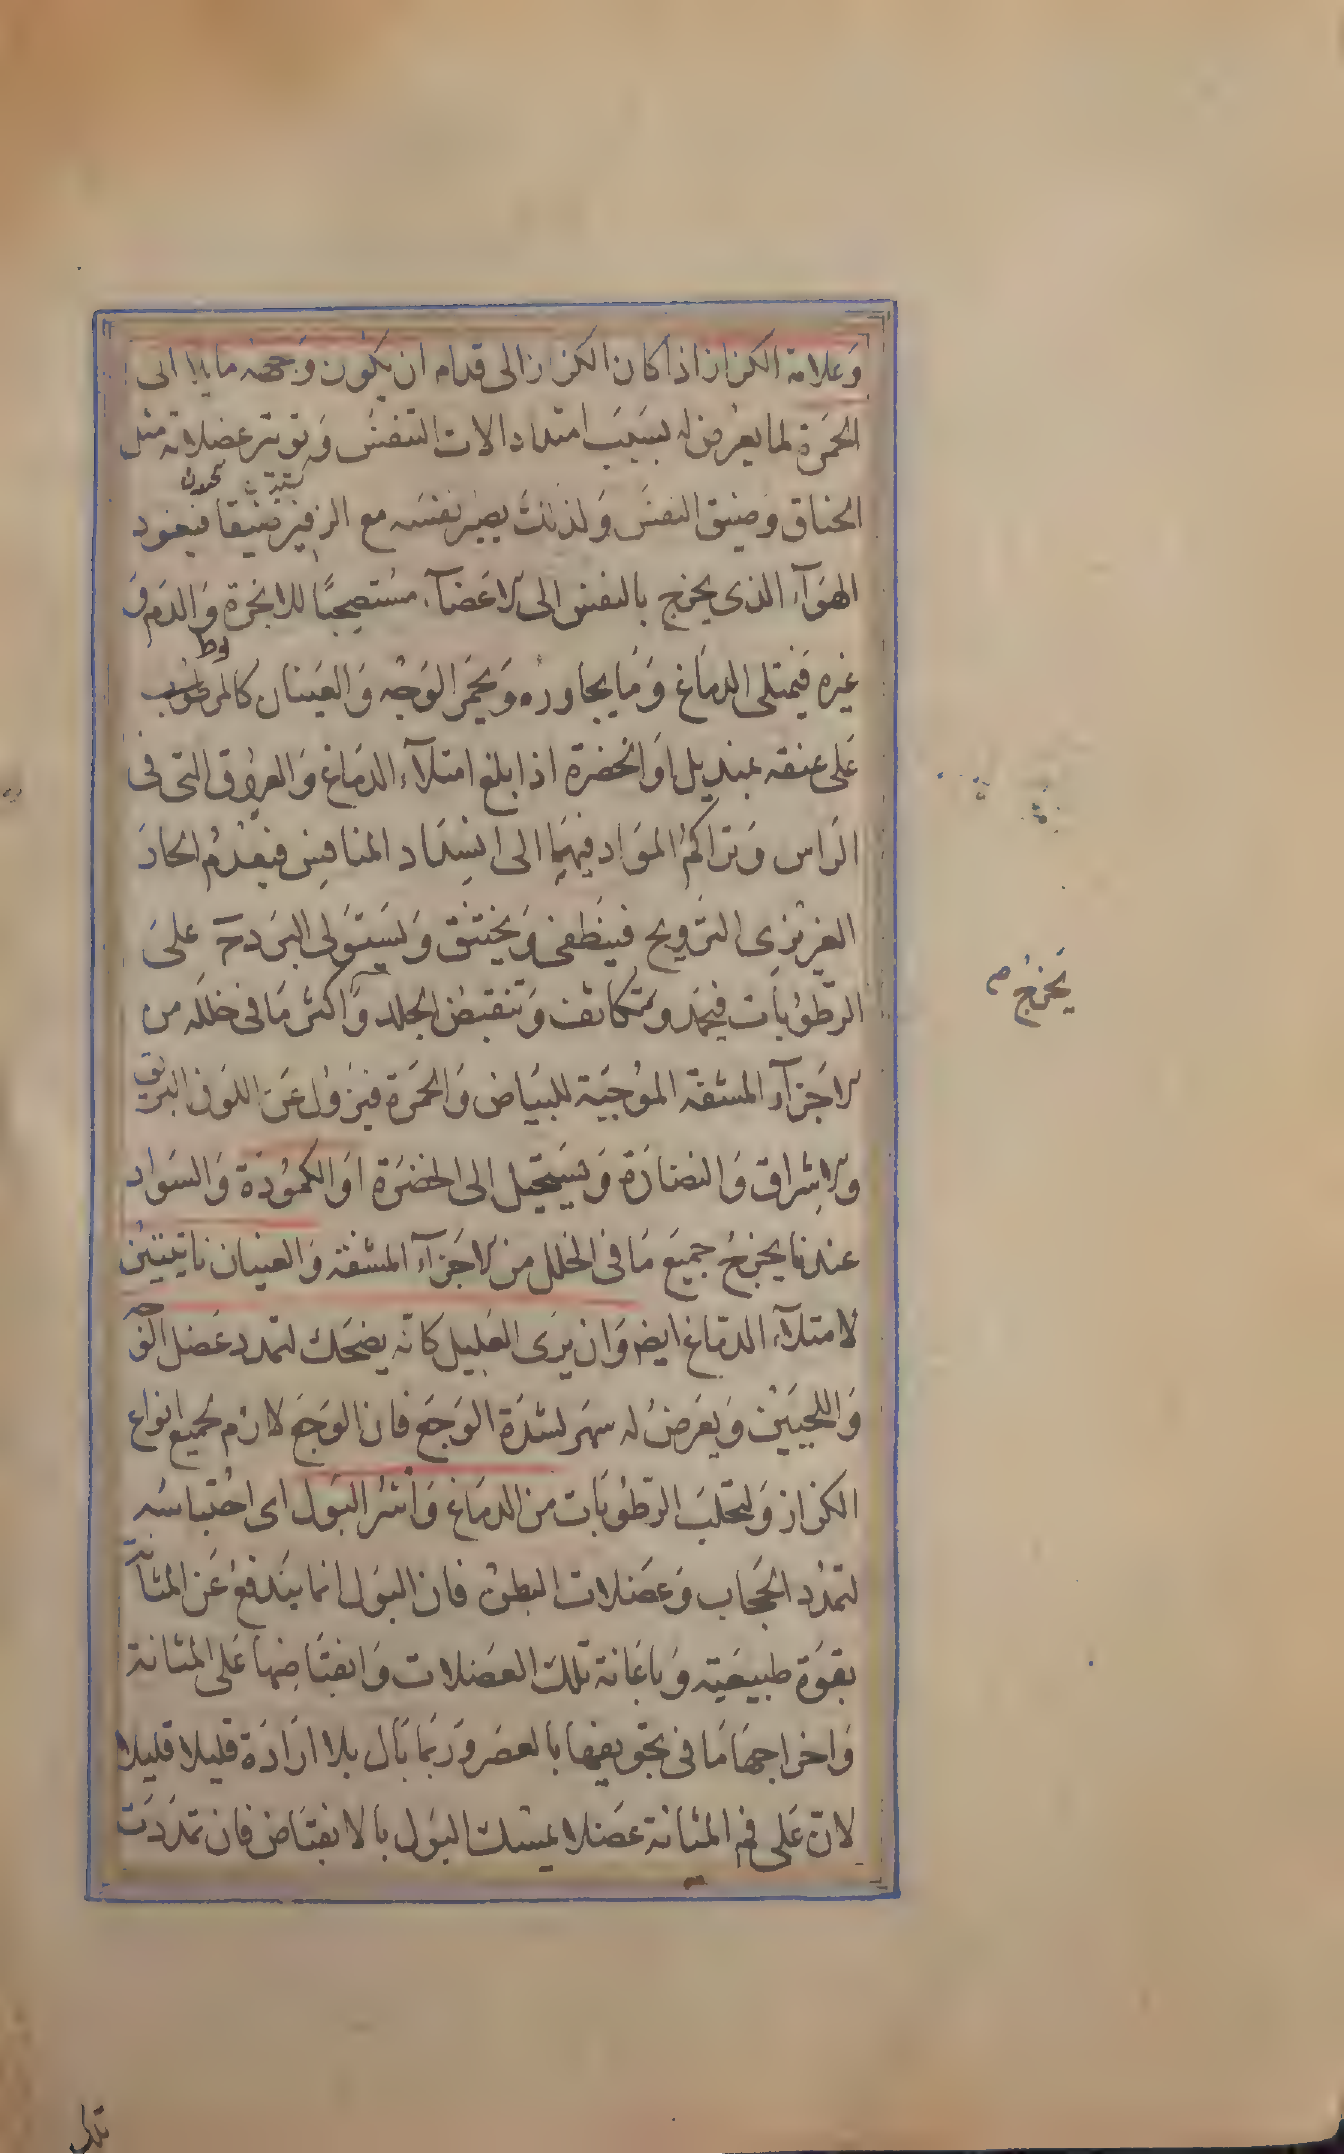 وَعلامة الكزاز اذا كان الكزاز الى قدام ان يكون وَجهه مايلا الى
الحمَرة لما يعرض له بسَبَب امتداد الات التنفسَ وَتوتر عضلاته مثل
الخناق وضيق النفسَ وَلذلكَ يصير نفسَه مع الزفير ضَيّقا فيعود
الهوَآء الذى يخرج بالنفس الى الاعَضآء مسُتصحبًا للابخرة وَالدم وَ
غيره فيَمتلى الدمَاغ وَمَا يجاورُه وَيحمَر الوَجْه وَالعَينان كالمربوط
عَلى عنقه بمنديل اوَالخضرة اذا بلغ امتلآء الدمَاغ وَالعروُق التى فى
الرَاس وَتراكمُ الموَاد فيهمَا الى انسِدَاد المنافِس فيعْدمُ الحارَ
الغريْزى الترَويح فينَطفى وَيختنق وَيسَتوَلى البرَد ح علىَ
الرطوُبَات فيجمَد وتتكاثف وَتنقبضُ الجلد وَاكثر مَا فى خللَه من
الاجَزآء المشفة الموُجبَة للبيَاض وَالحمَرة فيزَوُل عَن اللوَن البرَيق
والاشِراق وَالنضَارَة وَيسَتحيَل الى الخضرَة اوَ الكموُدَة وَالسَواد
عندمَا يخرجُ جميعَ مَا فى الخلل من الاجَزآء المشفة وَالعينان ناتيتين
لامتلآء الدمَاغ ايض وَان يرَى العَليل كانه يضحَك لتمدد عَضل الوَجه
وَاللحييَنْ وَيعَرضُ له سهَر لشدَة الوَجَع فان الوَجَع لازم لجميع انواع
الكزاز وَلتحلبَ الرطوُبَات من الدمَاغ وَاسْرُ البَول اى احُتباسُه
لتمدُد الحجَاب وَعضَلات البطنْ فان البوَل انما ينَدفعُ عَن المثانَة
بقوَة طبيعَيَه وَباعَانة تلكَ العضَلات وَانقبَاضِهَا عَلى المثانة
وَاخراجهَا مَا فى تجوَيفها بالعصَر وَرَبَما بَال بلا ارَادَة قليلا قليلا
لان عَلى فم المثانة عضَلا يمسْك البوَل بالانقبَاض فان تمدَدَت
يَخرجُ م
تلك